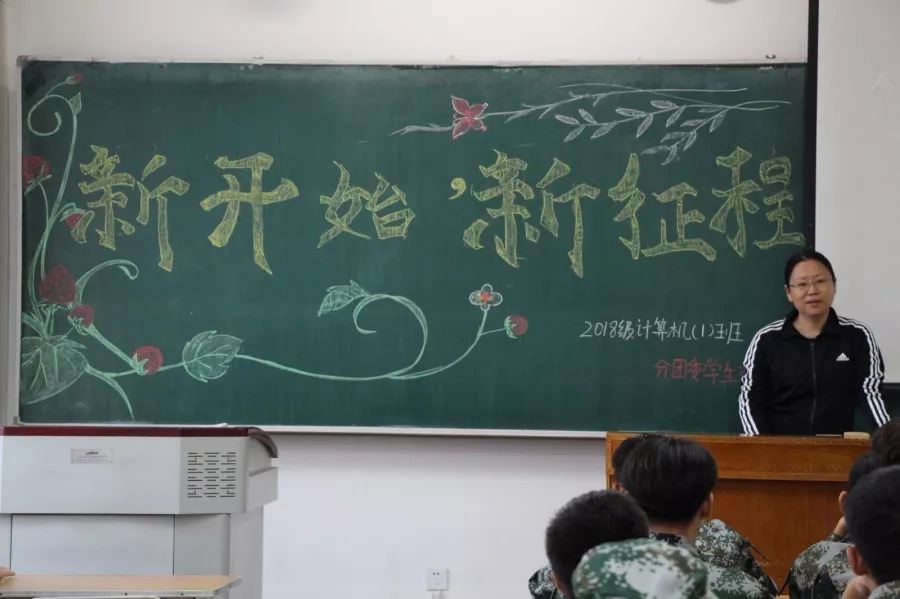 新开始,新征程
2018级计算机(1)班
分团委学生
adidas